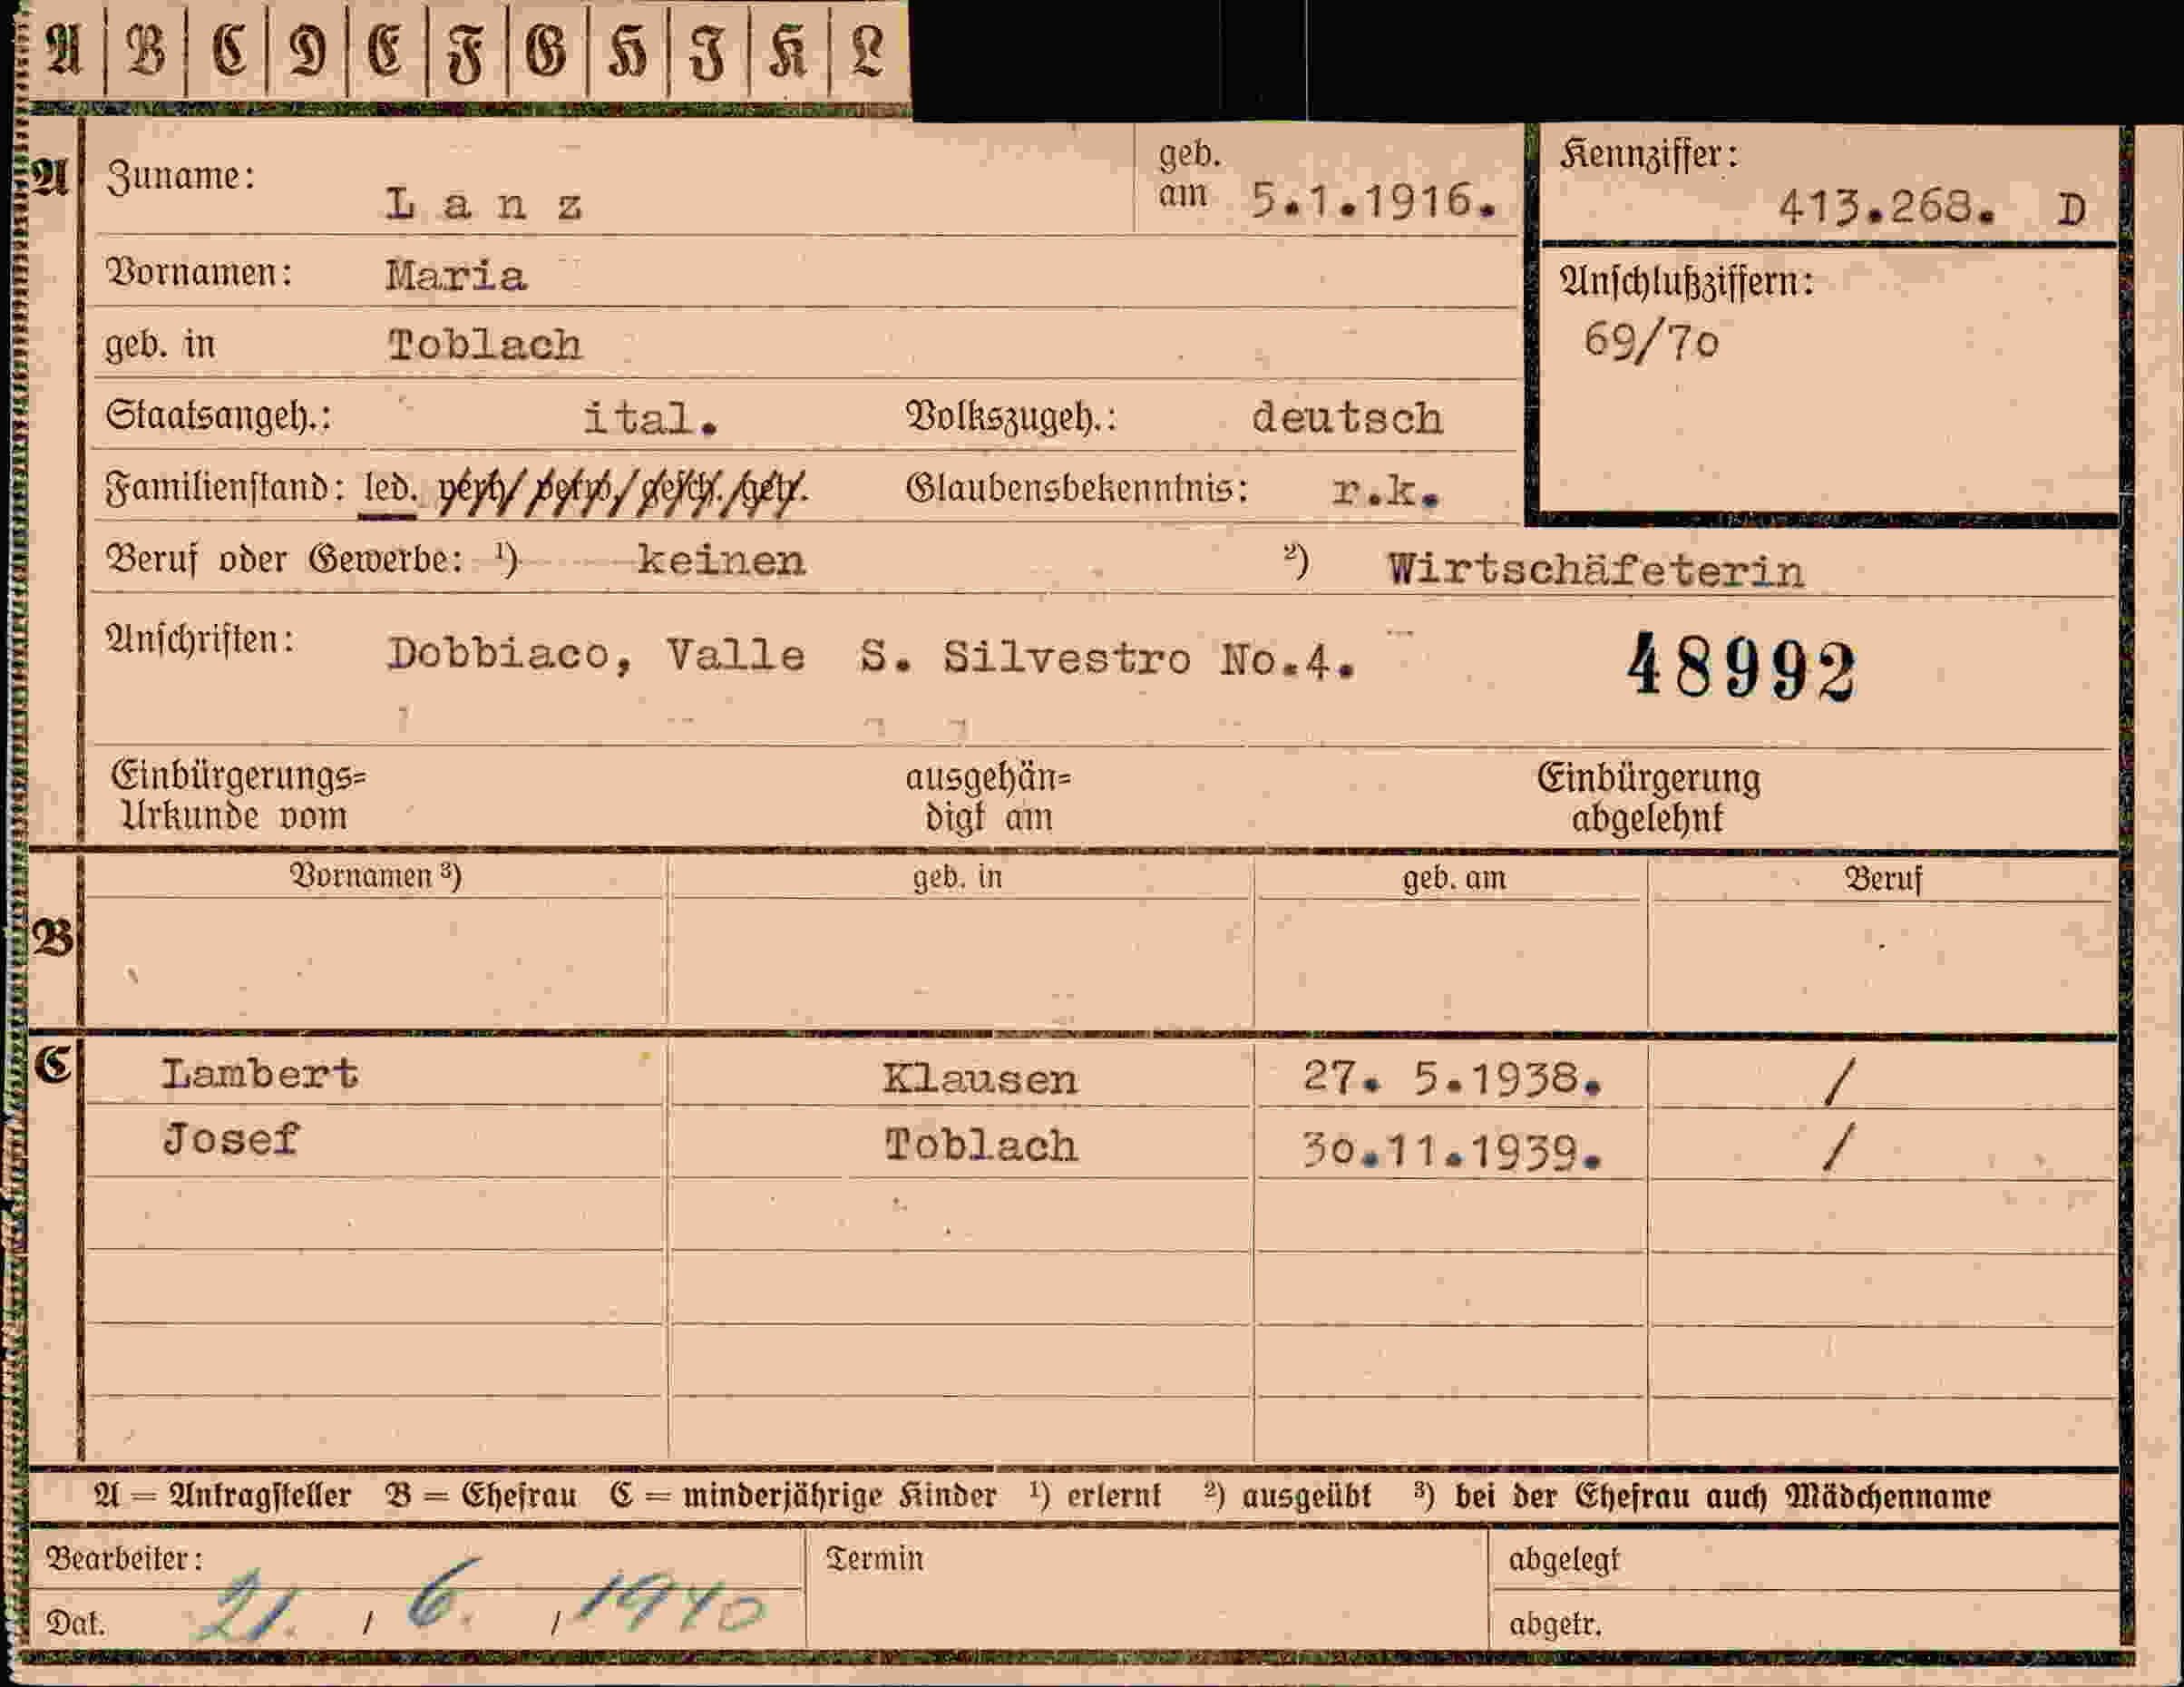 A B C D E F G H J K L
A Zuname: Lanz geb. am 5.1.1916. Kennziffer: 413.268. D
Vornamen: Maria Anschlußziffern:
geb. in Toblach 69/70
Staatsangeh.: ital. Volkszugeh.: deutsch
Familienstand: led. verh/ verw./ gesch./getr. Glaubensbekenntnis: r.k.
Beruf oder Gewerbe: ¹) keinen ²) Wirtschäfeterin
Anschriften: Dobbiaco, Valle S. Silvestro No.4. 48992
Einbürgerungs= ausgehän= Einbürgerung
Urkunde vom digt am abgelehnt
Vornamen ³) geb. in geb. am Beruf
B
C Lambert Klausen 27. 5.1938. /
Josef Toblach 30.11.1939. /
A = Antragsteller B = Ehefrau C = minderjährige Kinder ¹) erlernt ²) ausgeübt ³) bei der Ehefrau auch Mädchenname
Bearbeiter: Termin abgelegt
Dat. 21. / 6. / 1940 abgetr.